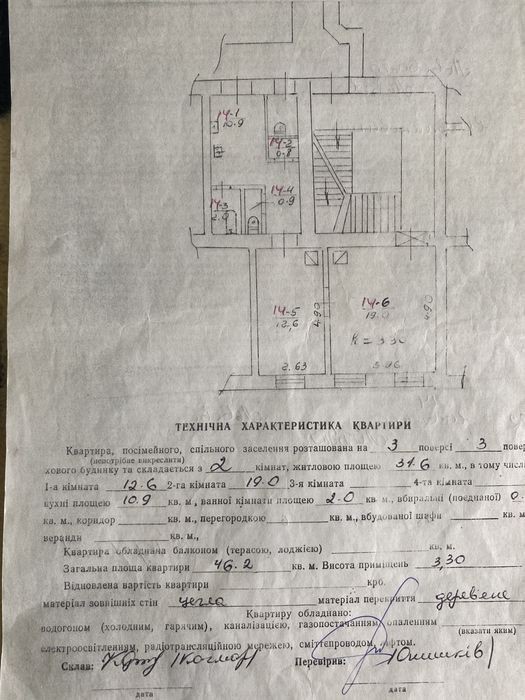 14-1
10.9
14-2
0.8
14-3
2.0
14-4
0.9
14-5
12,6
4.90
14-6
19.0
4.90
h = 3.30
2.63
ТЕХНІЧНА ХАРАКТЕРИСТИКА КВАРТИРИ
Квартира, посімейного, спільного заселення розташована на 3 поверсі 3 повер
(непотрібне викреслити)
хового будинку та складається з 2 кімнат, житловою площею 31.6 кв. м., в тому числі
1-а кімната 12.6 2-га кімната 19.0 3-я кімната 4-та кімната
кухні площею 10.9 кв. м., ванної кімнати площею 2.0 кв. м., вбиральні (поєднаної) 0.
кв. м., коридор кв. м., перегородкою кв. м., вбудованої шафи кв. м.
веранди кв. м.,
Квартира обладнана балконом (терасою, лоджією) кв. м.
Загальна площа квартири 46.2 кв. м. Висота приміщень 3,30
Відновлена вартість квартири крб.
матеріал зовнішніх стін цегла матеріал перекриття деревяне
Квартиру обладнано:
водогоном (холодним, гарячим), каналізацією, газопостачанням, опаленням
(вказати яким)
електроосвітленням, радіотрансляційною мережею, сміттепроводом, ліфтом.
Склав: Перевірив:
дата дата